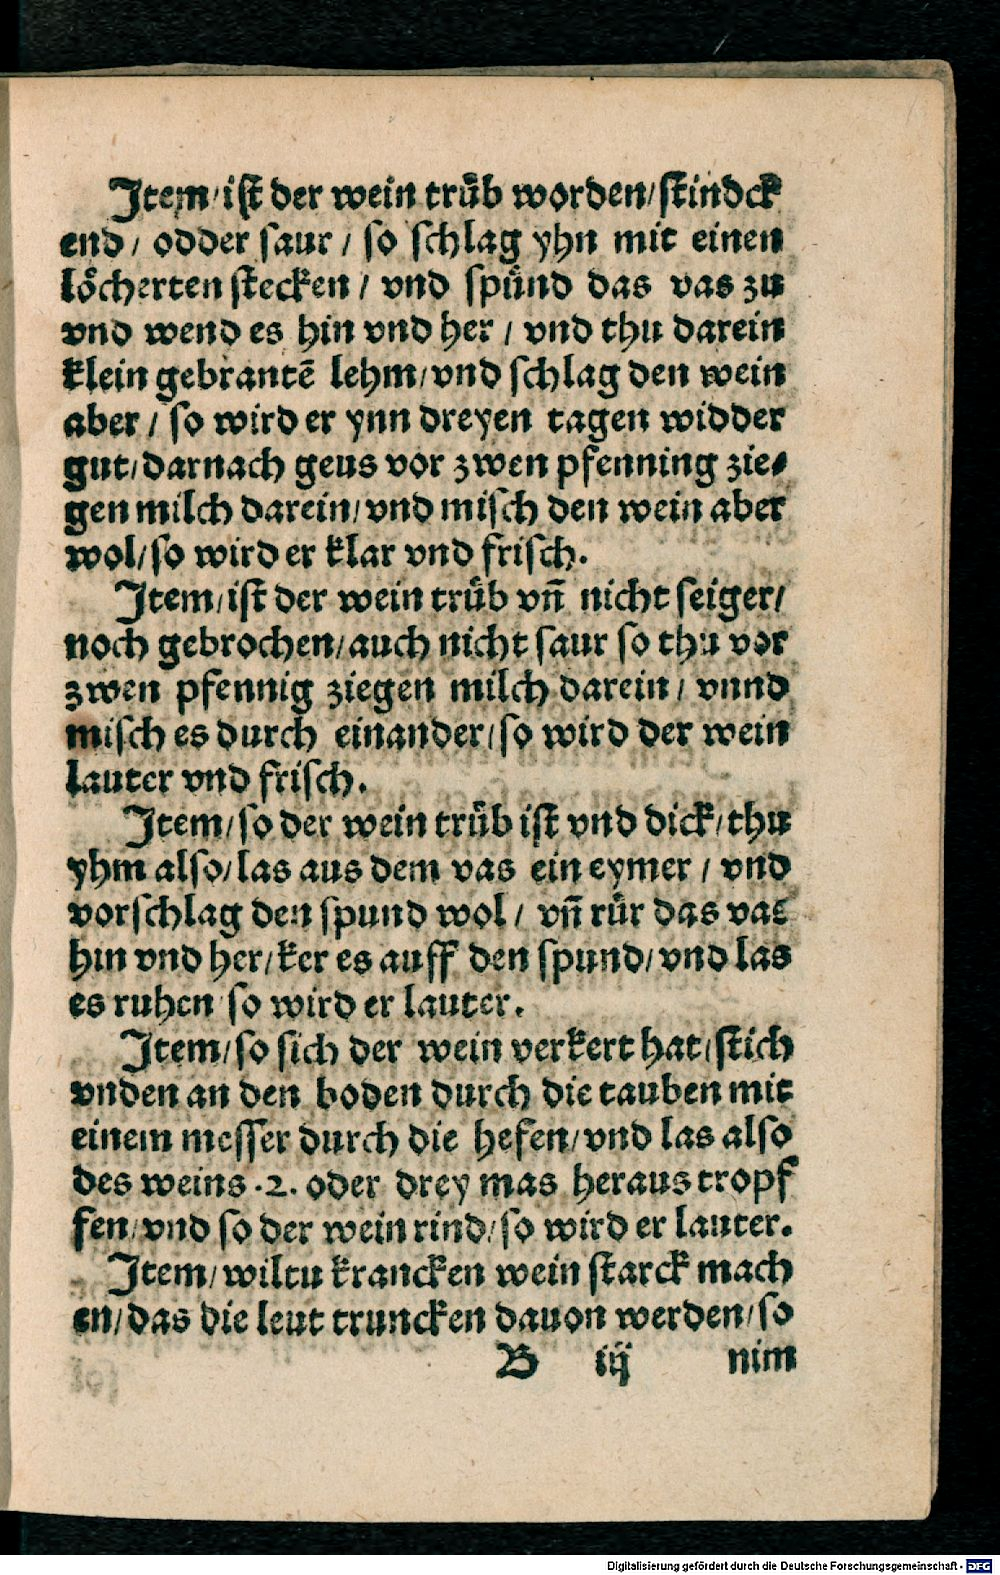 Item/ist der wein trüb worden/stindck
end/ odder saur/ so schlag yhn mit einen
löcherten stecken/ vnd spünd das vas zu
vnd wend es hin vnd her/ vnd thu darein
klein gebrantē lehm/vnd schlag den wein
aber/ so wird er ynn dreyen tagen widder
gut/darnach geus vor zwen pfenning zie⸗
gen milch darein/vnd misch den wein aber
wol/so wird er klar vnd frisch.
Item/ist der wein trüb vñ nicht seiger/
noch gebrochen/auch nicht saur so thu vor
zwen pfennig ziegen milch darein/ vnnd
misch es durch einander/so wird der wein
lauter vnd frisch.
Item/so der wein trüb ist vnd dick/thu
yhm also/las aus dem vas ein eymer/ vnd
vorschlag den spund wol/ vñ rür das vas
hin vnd her/ker es auff den spund/vnd las
es ruhen so wird er lauter.
Item/so sich der wein verkert hat/stich
vnden an den boden durch die tauben mit
einem messer durch die hefen/vnd las also
des weins .2. oder drey mas heraus tropf
fen/vnd so der wein rind/so wird er lauter.
Item/wiltu krancken wein starck mach
en/das die leut truncken dauon werden/so
B iij nim
Digitalisierung gefördert durch die Deutsche Forschungsgemeinschaft - DFG